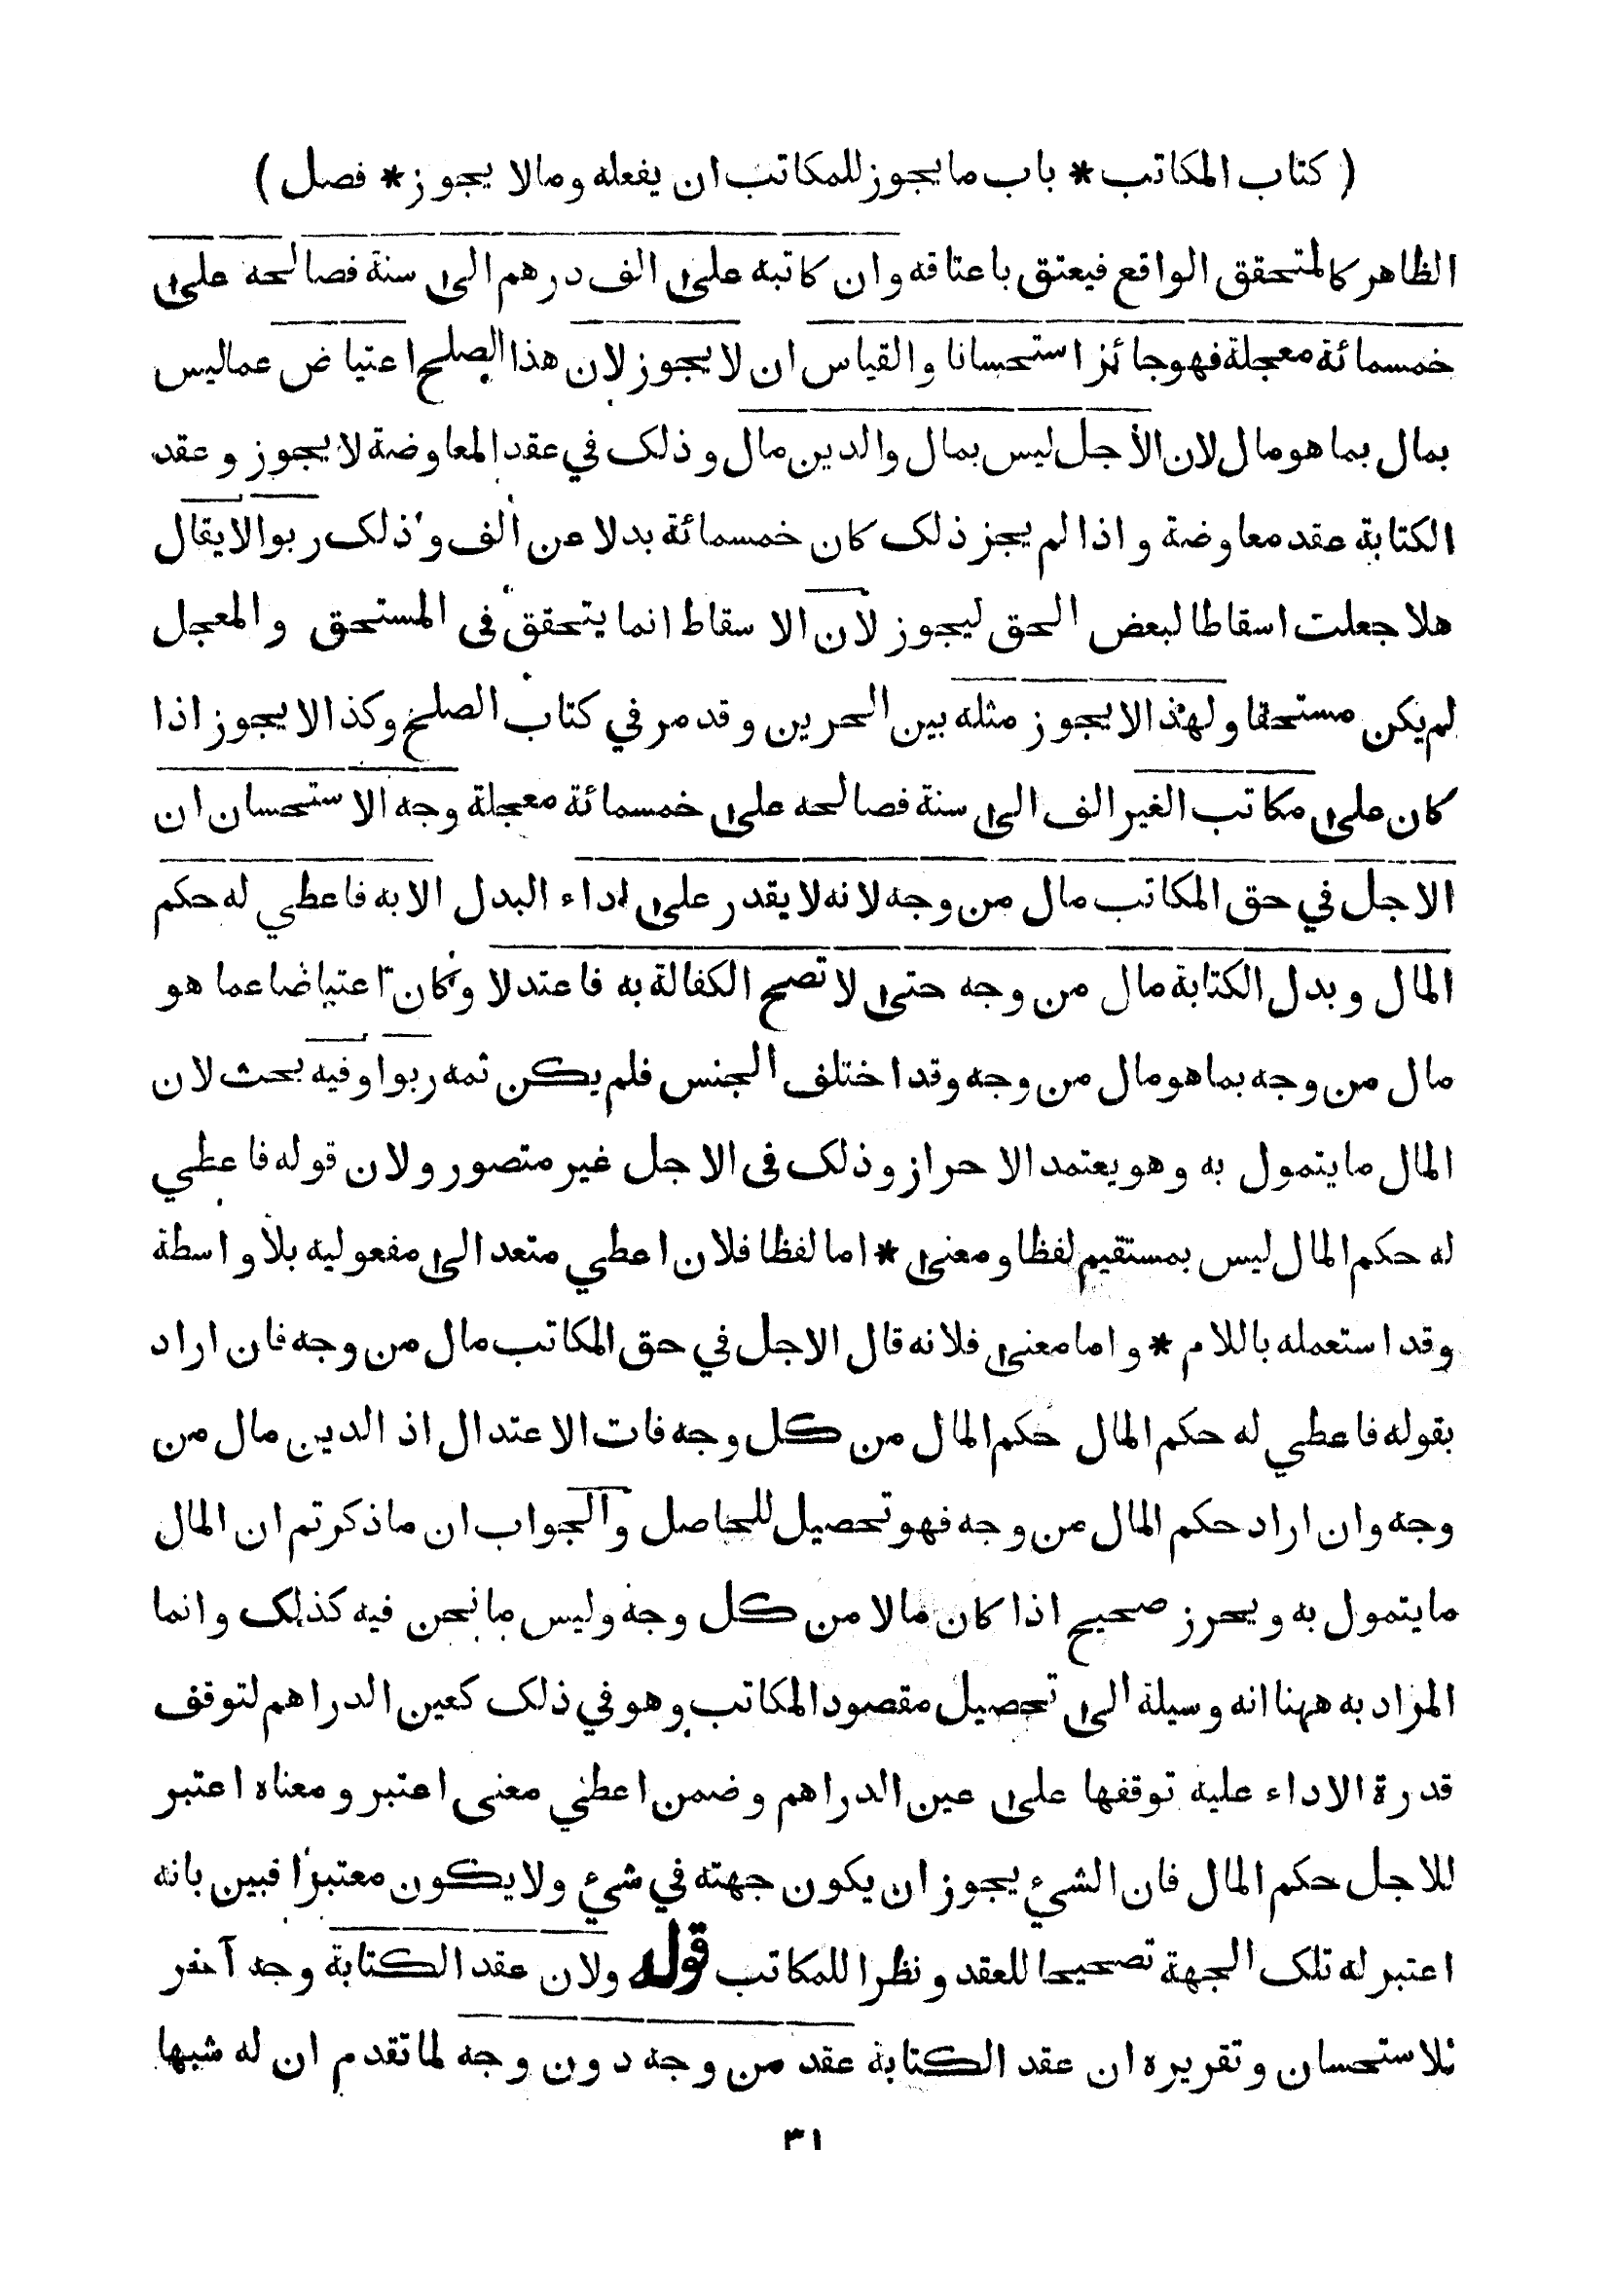 ( كتاب المكاتب * باب ما يجوز للمكاتب ان يفعله وما لا يجوز * فصل )
الظاهر كالمتحقق الواقع فيعتق باعتاقه وان كاتبه على الف درهم الى سنة فصالحه على
خمسمائة معجلة فهو جائز استحسانا والقياس ان لا يجوز لان هذا الصلح اعتياض عما ليس
بمال بما هو مال لان الأجل ليس بمال والدين مال وذلك في عقد المعاوضة لا يجوز وعقد
الكتابة عقد معاوضة واذا لم يجز ذلك كان خمسمائة بدلا عن ألف وذلك ربوا لا يقال
هلا جعلت اسقاطا لبعض الحق ليجوز لان الاسقاط انما يتحقق في المستحق والمعجل
لم يكن مستحقا ولهذا لا يجوز مثله بين الحرين وقد مر في كتاب الصلح وكذا لا يجوز اذا
كان على مكاتب الغير الف الى سنة فصالحه على خمسمائة معجلة وجه الاستحسان ان
الاجل في حق المكاتب مال من وجه لانه لا يقدر على اداء البدل الا به فاعطي له حكم
المال وبدل الكتابة مال من وجه حتى لا تصح الكفالة به فاعتدلا وكان اعتياضا عما هو
مال من وجه بما هو مال من وجه وقد اختلف الجنس فلم يكن ثمه ربوا وفيه بحث لان
المال ما يتمول به وهو يعتمد الاحراز وذلك في الاجل غير متصور ولان قوله فاعطي
له حكم المال ليس بمستقيم لفظا ومعنى * اما لفظا فلان اعطي متعد الى مفعوليه بلا واسطة
وقد استعمله باللام * واما معنى فلانه قال الاجل في حق المكاتب مال من وجه فان اراد
بقوله فاعطي له حكم المال حكم المال من كل وجه فات الاعتدال اذ الدين مال من
وجه وان اراد حكم المال من وجه فهو تحصيل للحاصل والجواب ان ما ذكرتم ان المال
ما يتمول به ويحرز صحيح اذا كان مالا من كل وجه وليس ما نحن فيه كذلك وانما
المراد به ههنا انه وسيلة الى تحصيل مقصود المكاتب وهو في ذلك كعين الدراهم لتوقف
قدرة الاداء عليه توقفها على عين الدراهم وضمن اعطي معنى اعتبر ومعناه اعتبر
للاجل حكم المال فان الشيء يجوز ان يكون جهته في شيء ولا يكون معتبرا فبين بانه
اعتبر له تلك الجهة تصحيحا للعقد ونظرا للمكاتب قوله ولان عقد الكتابة وجه آخر
للاستحسان وتقريره ان عقد الكتابة عقد من وجه دون وجه لما تقدم ان له شبها
٣١